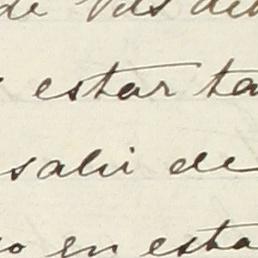 de Vds de
estar ta
sali de
en esta